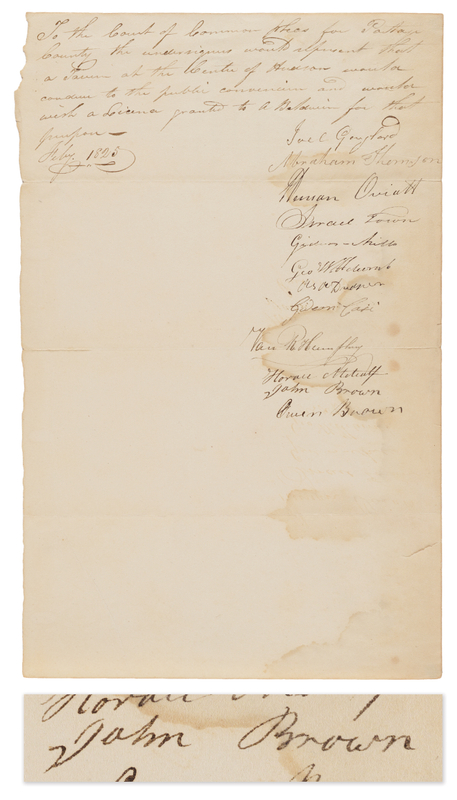 To the Court of Common Pleas for Portage
County the undersigners would represent that
a Tavern at the Centre of Hudson would
conduce to the public convenience and would
wish a Licence granted to A Baldwin for that
purpose —
Feby. 1828
Joel Gaylord
Abraham Thomson
Heman Oviatt
Israel Town
Gideon Mills
Geo W Holcomb
Gideon Case
Van R Humphrey
Horace Metcalf
John Brown
Owen Brown
Horace
John Brown